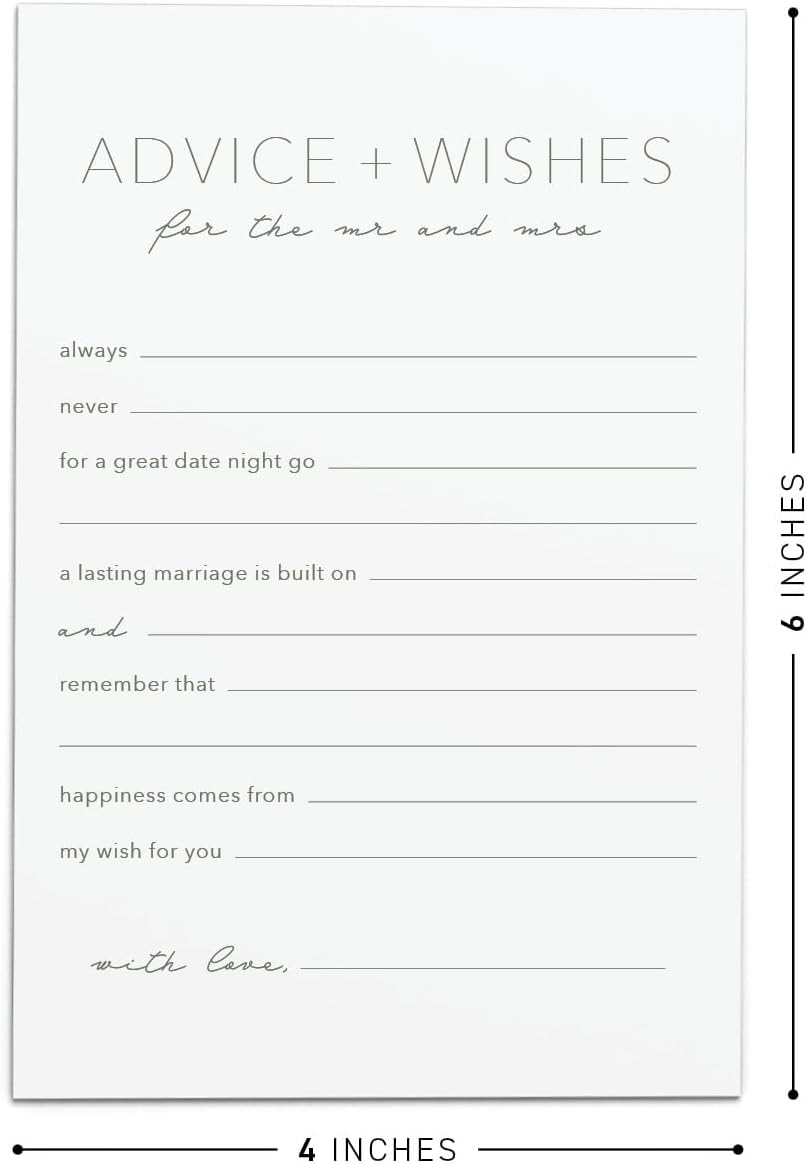 ADVICE + WISHES
for the mr and mrs
always
never
for a great date night go
a lasting marriage is built on
and
remember that
happiness comes from
my wish for you
with love,
6 INCHES
4 INCHES